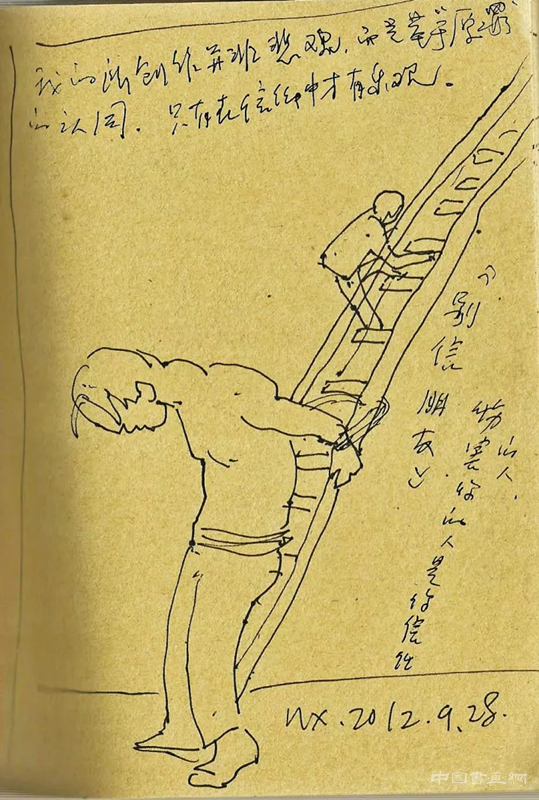 我的漫创作并非悲观，而是基于原罪
的认同。只有在信仰中才有乐观。
《别信朋友》
伤害你的人是你信任
的人。
WX.2012.9.28.
中国书画网